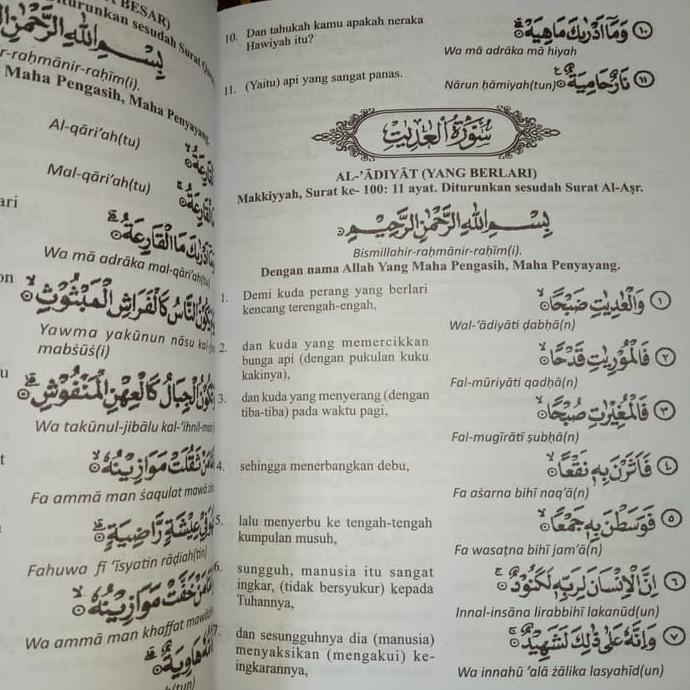 BESAR)
iturunkan sesudah Surat
r-raḥmānir-raḥīm(i).
Maha Pengasih, Maha Penyayang
Al-qāri'ah(tu)
الْقَارِعَةُ
Mal-qāri'ah(tu)
ari
مَا الْقَارِعَةُ
Wa mā adrāka mal-qāri'ah(tu)
وَمَا أَدْرٰىكَ مَا الْقَارِعَةُ
on
النَّاسُ كَالْفَرَاشِ الْمَبْثُوْثِ
Yawma yakūnun nāsu
mabśūś(i)
u
الْجِبَالُ كَالْعِهْنِ الْمَنْفُوْشِ
Wa takūnul-jibālu kal-'ihnil-
t
مَنْ ثَقُلَتْ مَوَازِيْنُهُ
Fa ammā man śaqulat
عِيْشَةٍ رَّاضِيَةٍ
Fahuwa fī 'īsyatin rāḍiah(tin)
مَنْ خَفَّتْ مَوَازِيْنُهُ
Wa ammā man khaffat
هَاوِيَةٌ
10. Dan tahukah kamu apakah neraka
Hawiyah itu?
وَمَآ اَدْرٰىكَ مَاهِيَهْ ١٠
Wa mā adrāka mā hiyah
11. (Yaitu) api yang sangat panas.
نَارٌ حَامِيَةٌ ١١
Nārun ḥāmiyah(tun)
سُوْرَةُ الْعٰدِيٰتِ
AL-'ĀDIYĀT (YANG BERLARI)
Makkiyyah, Surat ke- 100: 11 ayat. Diturunkan sesudah Surat Al-Aṣr.
بِسْمِ اللهِ الرَّحْمٰنِ الرَّحِيْمِ
Bismillahir-raḥmānir-raḥīm(i).
Dengan nama Allah Yang Maha Pengasih, Maha Penyayang.
1. Demi kuda perang yang berlari
kencang terengah-engah,
وَالْعٰدِيٰتِ ضَبْحًا ١
Wal-'ādiyāti ḍabḥā(n)
2. dan kuda yang memercikkan
bunga api (dengan pukulan kuku
kakinya),
فَالْمُوْرِيٰتِ قَدْحًا ٢
Fal-mūriyāti qadḥā(n)
3. dan kuda yang menyerang (dengan
tiba-tiba) pada waktu pagi,
فَالْمُغِيْرٰتِ صُبْحًا ٣
Fal-mugīrāti ṣubḥā(n)
4. sehingga menerbangkan debu,
فَاَثَرْنَ بِهٖ نَقْعًا ٤
Fa aśarna bihī naq'ā(n)
5. lalu menyerbu ke tengah-tengah
kumpulan musuh,
فَوَسَطْنَ بِهٖ جَمْعًا ٥
Fa wasaṭna bihī jam'ā(n)
6. sungguh, manusia itu sangat
ingkar, (tidak bersyukur) kepada
Tuhannya,
اِنَّ الْاِنْسَانَ لِرَبِّهٖ لَكَنُوْدٌ ٦
Innal-insāna lirabbihī lakanūd(un)
7. dan sesungguhnya dia (manusia)
menyaksikan (mengakui) ke-
ingkarannya,
وَاِنَّهٗ عَلٰى ذٰلِكَ لَشَهِيْدٌ ٧
Wa innahū 'alā żālika lasyahīd(un)